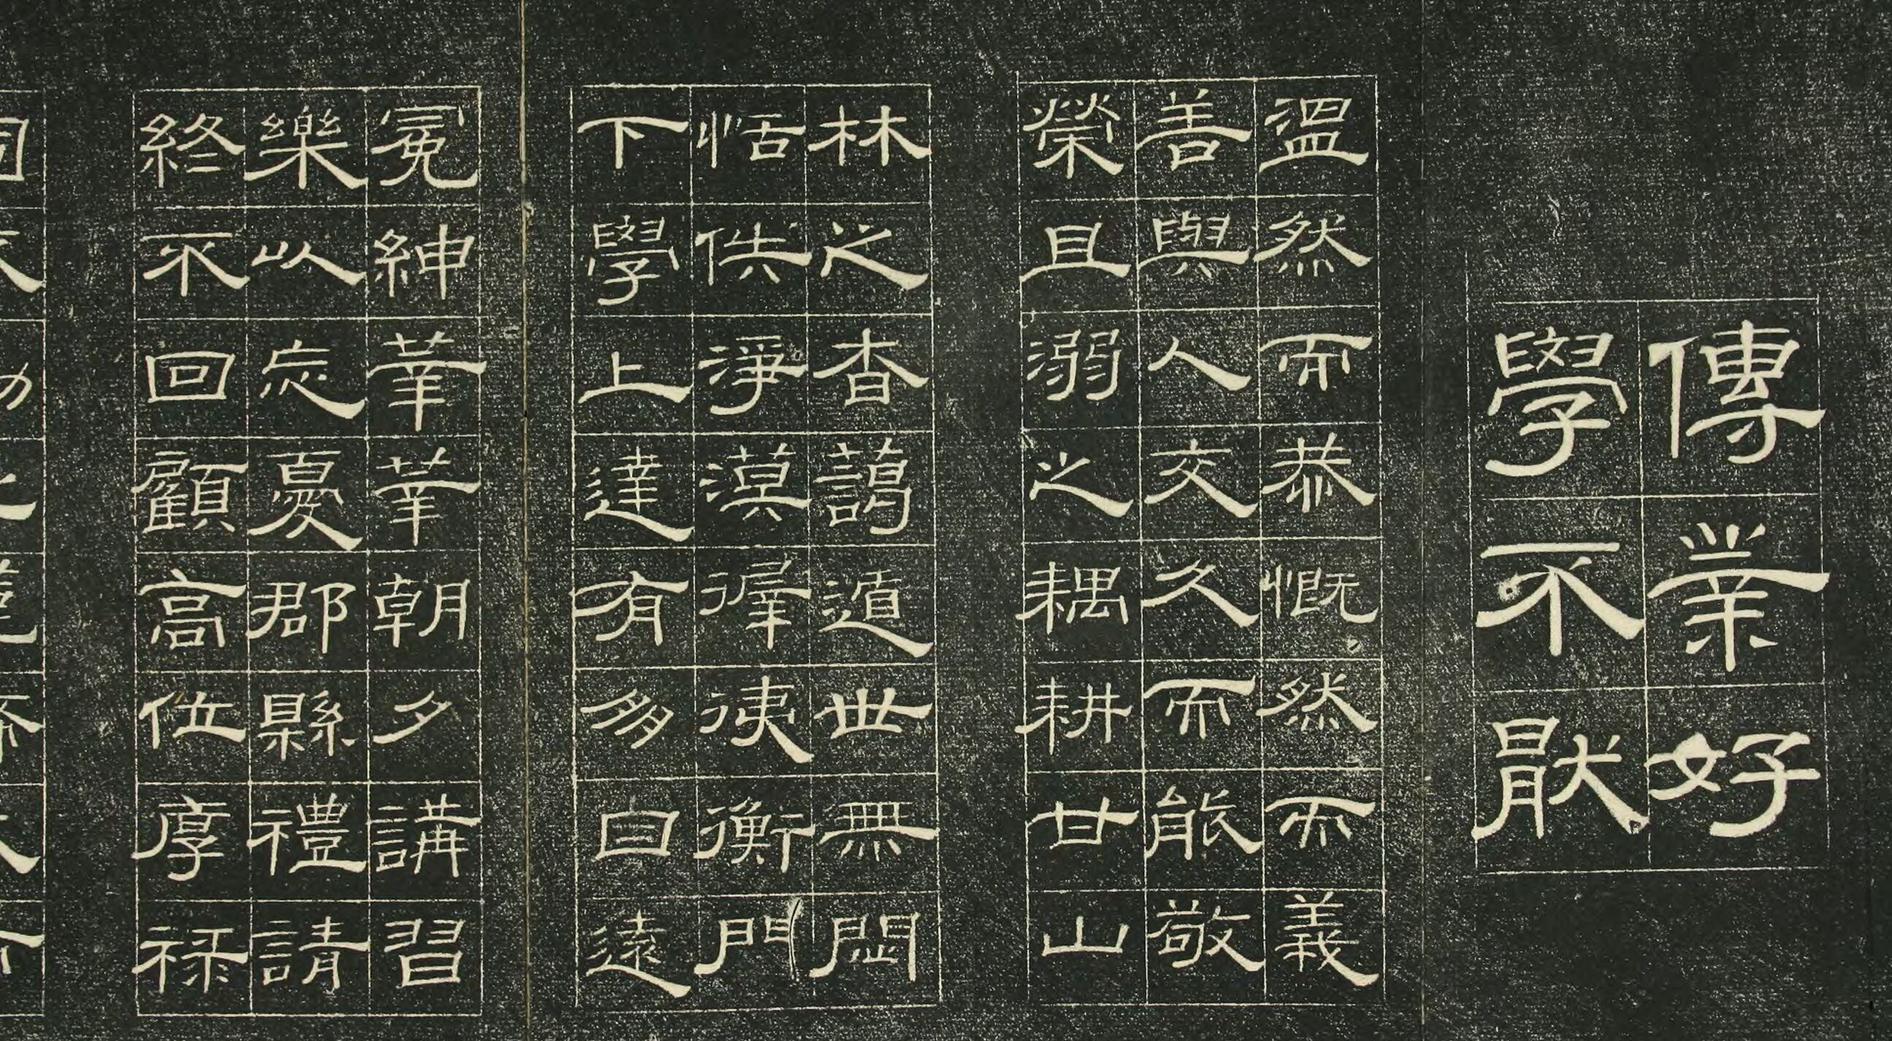 傳業好
學不猒
溫然而恭慨然而義
善與人交久而能敬
榮且溺之耦耕甘山
林之杳藹遁世無悶
恬佚淨漠徲𢓡衡門
下學上達有朋自遠
冕紳莘莘朝夕講習
樂以忘憂郡縣禮請
終不回顧高位厚祿